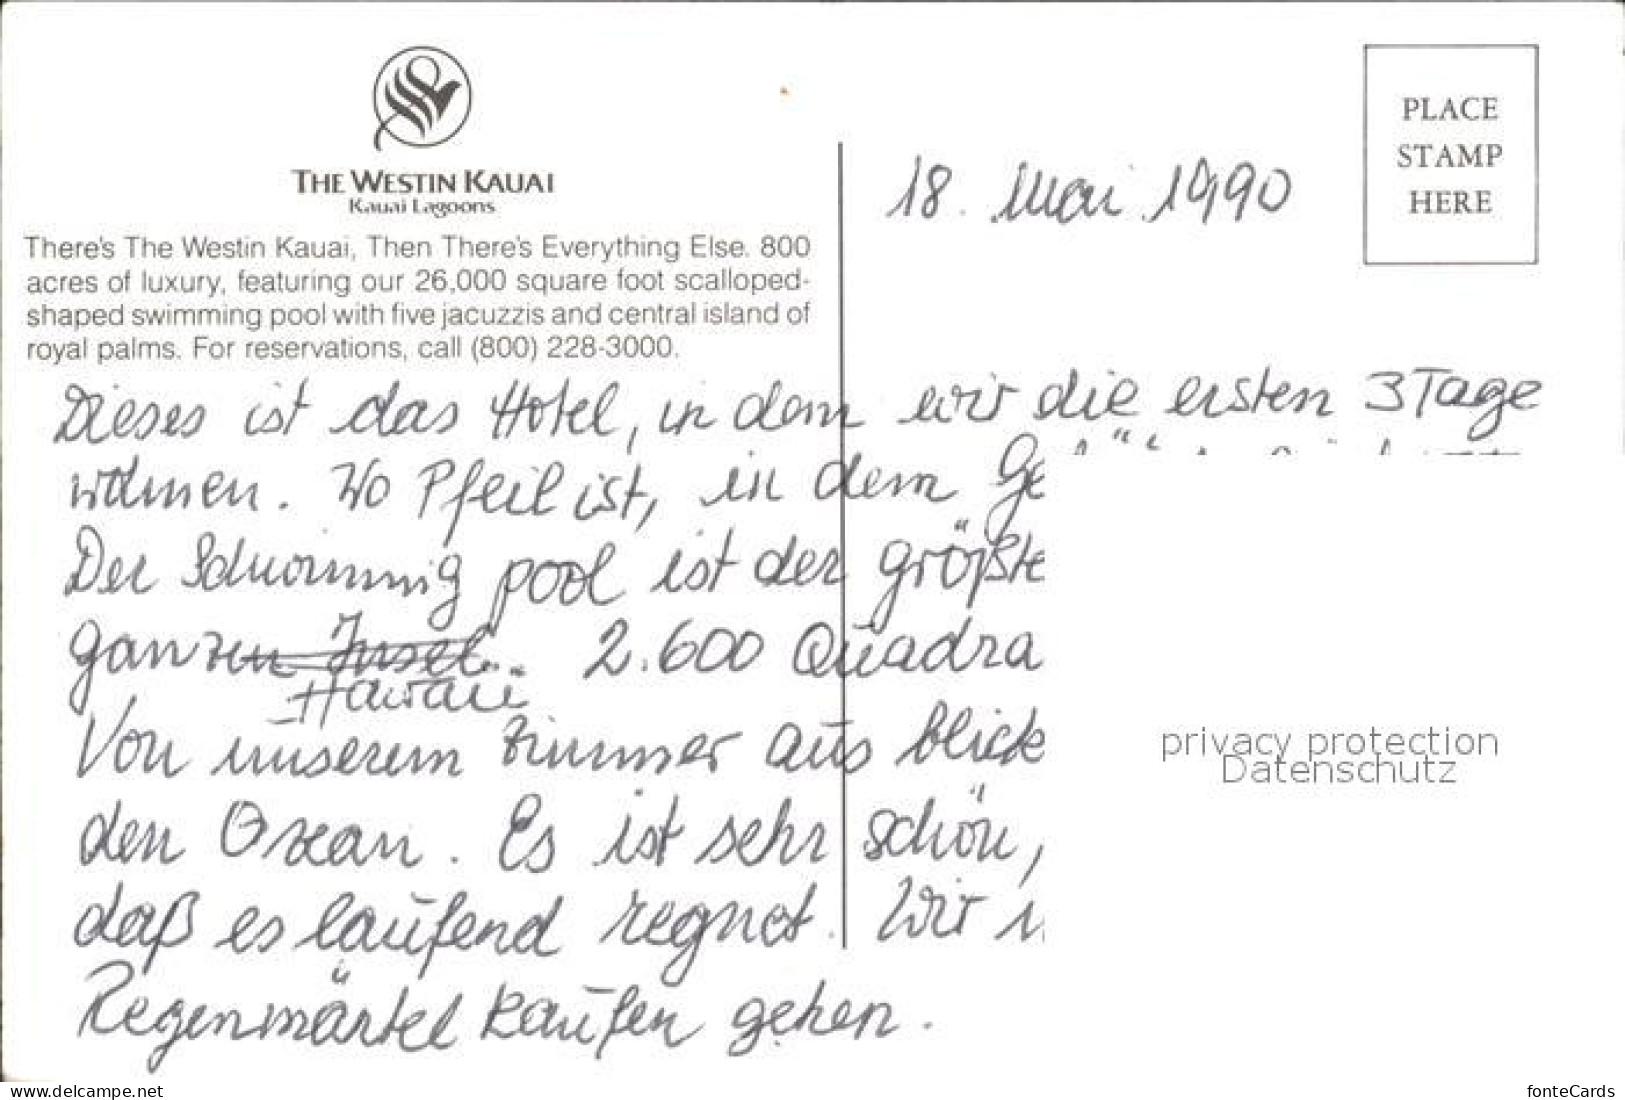 THE WESTIN KAUAI
Kauai Lagoons
There's The Westin Kauai, Then There's Everything Else. 800
acres of luxury, featuring our 26,000 square foot scalloped-
shaped swimming pool with five jacuzzis and central island of
royal palms. For reservations, call (800) 228-3000.
PLACE
STAMP
HERE
18. Mai 1990
Dieses ist das Hotel, in dem wir die ersten 3 Tage
wohnen. Wo Pfeil ist, in dem Ge
Der Schwimmig pool ist der größte
ganzen Insel. 2.600 Quadra
Hawaii
Von unserem Zimmer aus blick
den Ozean. Es ist sehr schön,
daß es laufend regnet. Wir
Regenmäntel kaufen gehen.
privacy protection
Datenschutz
www.delcampe.net
fonteCards